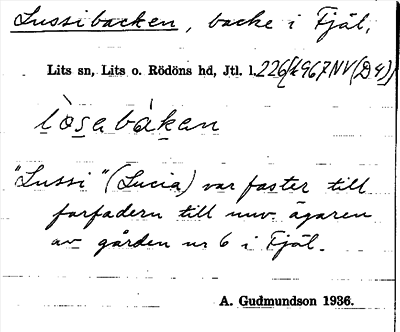 Lussibacken, backe i Fjäl,
Lits sn, Lits o. Rödöns hd, Jtl. l.
lòsabáken
"Lussi" (Lucia) var faster till
farfadern till nuv. ägaren
av gården nr 6 i Fjäl.
A. Gudmundson 1936.